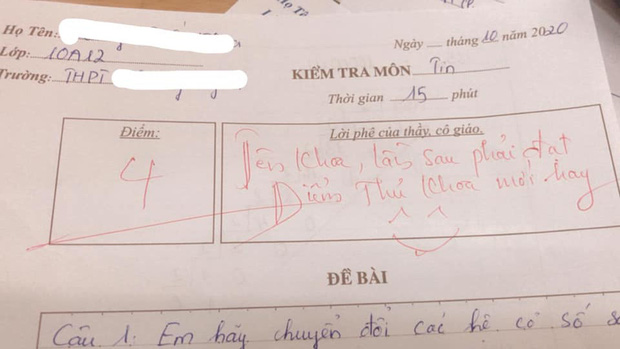 Họ Tên:
Lớp: 10A12
Trường: THPT
Ngày __ tháng 10 năm 2020
KIỂM TRA MÔN Tin
Thời gian 15 phút
Điểm:
4
Lời phê của thầy, cô giáo.
Tên Khoa, lần sau phải đạt
Điểm Thủ Khoa mới hay
^ ^
ĐỀ BÀI
Câu 1: Em hãy chuyển đổi các hệ cơ số s